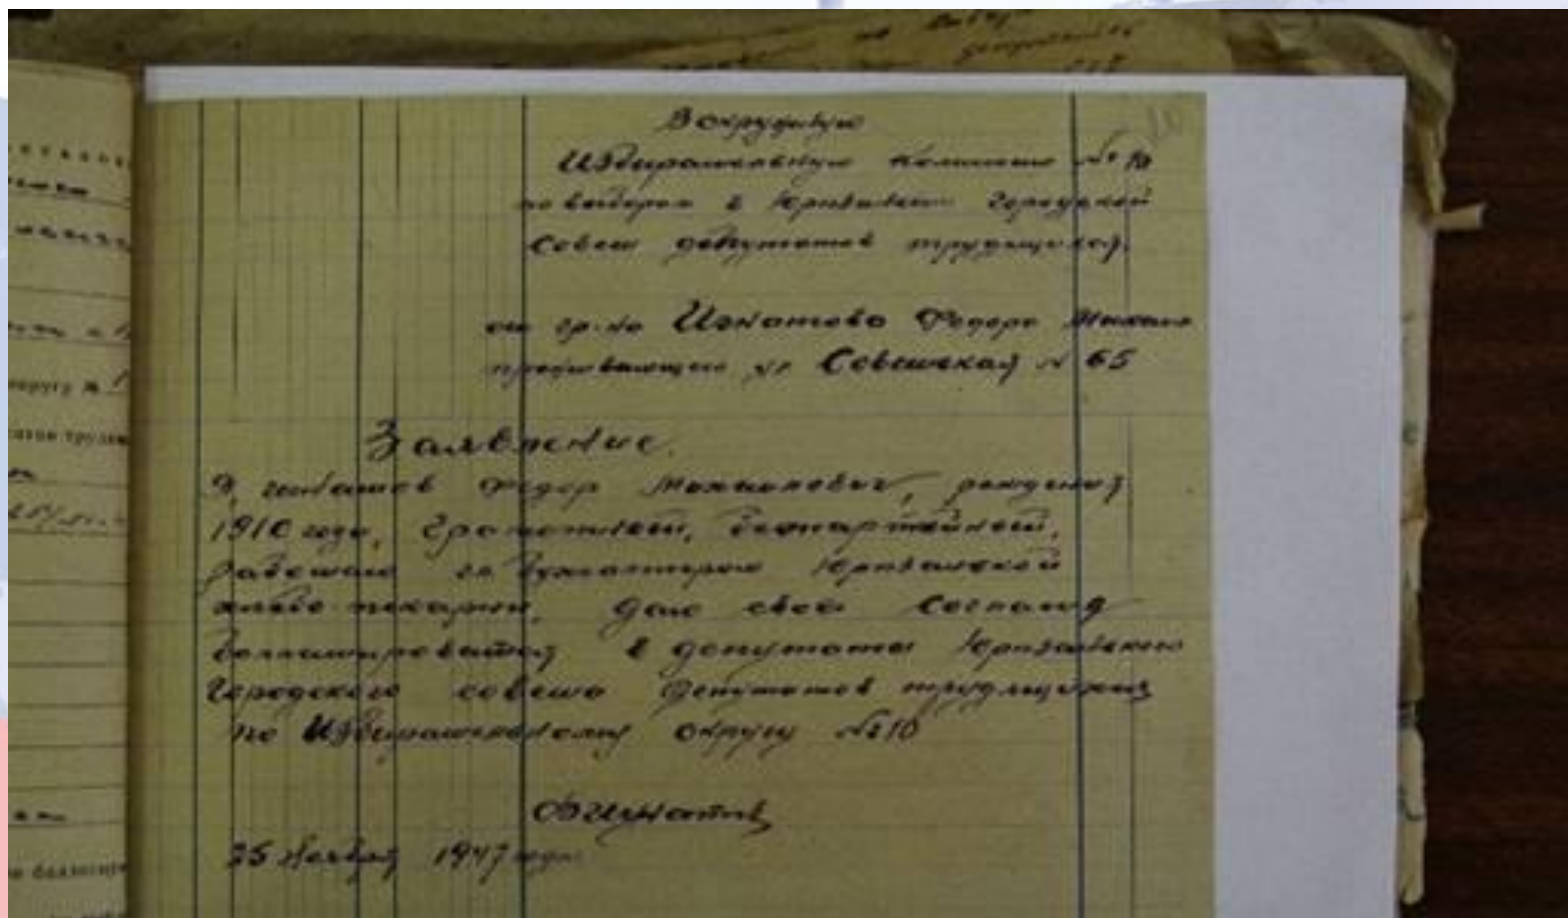 В окружную
Избирательную комиссию №10
по выборам в Юрюзанский Городской
Совет депутатов трудящихся.
от гр-на Игнатова Федора Михаил
проживающего ул Советская №65
Заявление.
Я, Игнатов Федор Михайлович, рождения
1910 года, Грамотный, беспартийный,
работаю гл. бухгалтером Юрюзанской
хлебо-пекарни, даю своё согласие
баллотироваться в депутаты Юрюзанского
Городского совета депутатов трудящихся
по Избирательному округу №10
Игнатов
25 ноября 1947 года